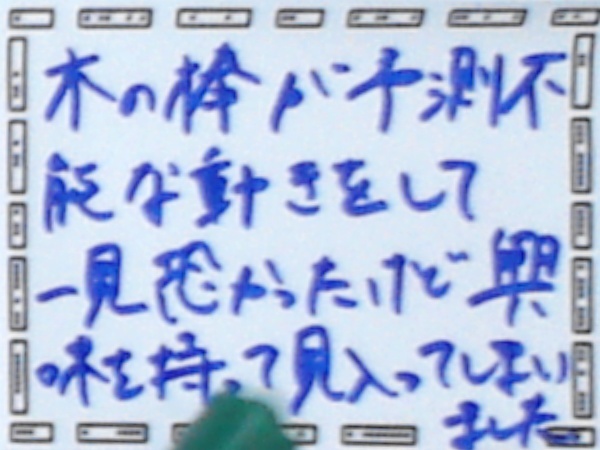 木の棒が予測不
能な動きをして
一見恐かったけど興
味を持って見入ってしまい
ました。